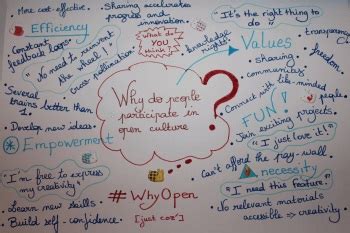 • More cost-effective.
• Sharing accelerates
progress and
innovation.
Efficiency
Constant
feedback loops
"No need to reinvent
the wheel!"
Cross-pollination
• Several
brains better than
1.
• Develop new ideas.
Empowerment
"I'm free to express
my creativity"
• Learn new skills.
• Build self-confidence.
What do
YOU
think?
Why do people
participate in
open culture
?
#WhyOpen
[just cos']
"It's the right thing to
do"
Values
knowledge
rights
• transparency
• freedom
• sharing
• communities
• Connect with like-minded
people
FUN!
• Join exciting projects
"I just love it!"
• Can't afford the pay-wall
necessity
"I need this feature"
• No relevant materials
accessible => creativity